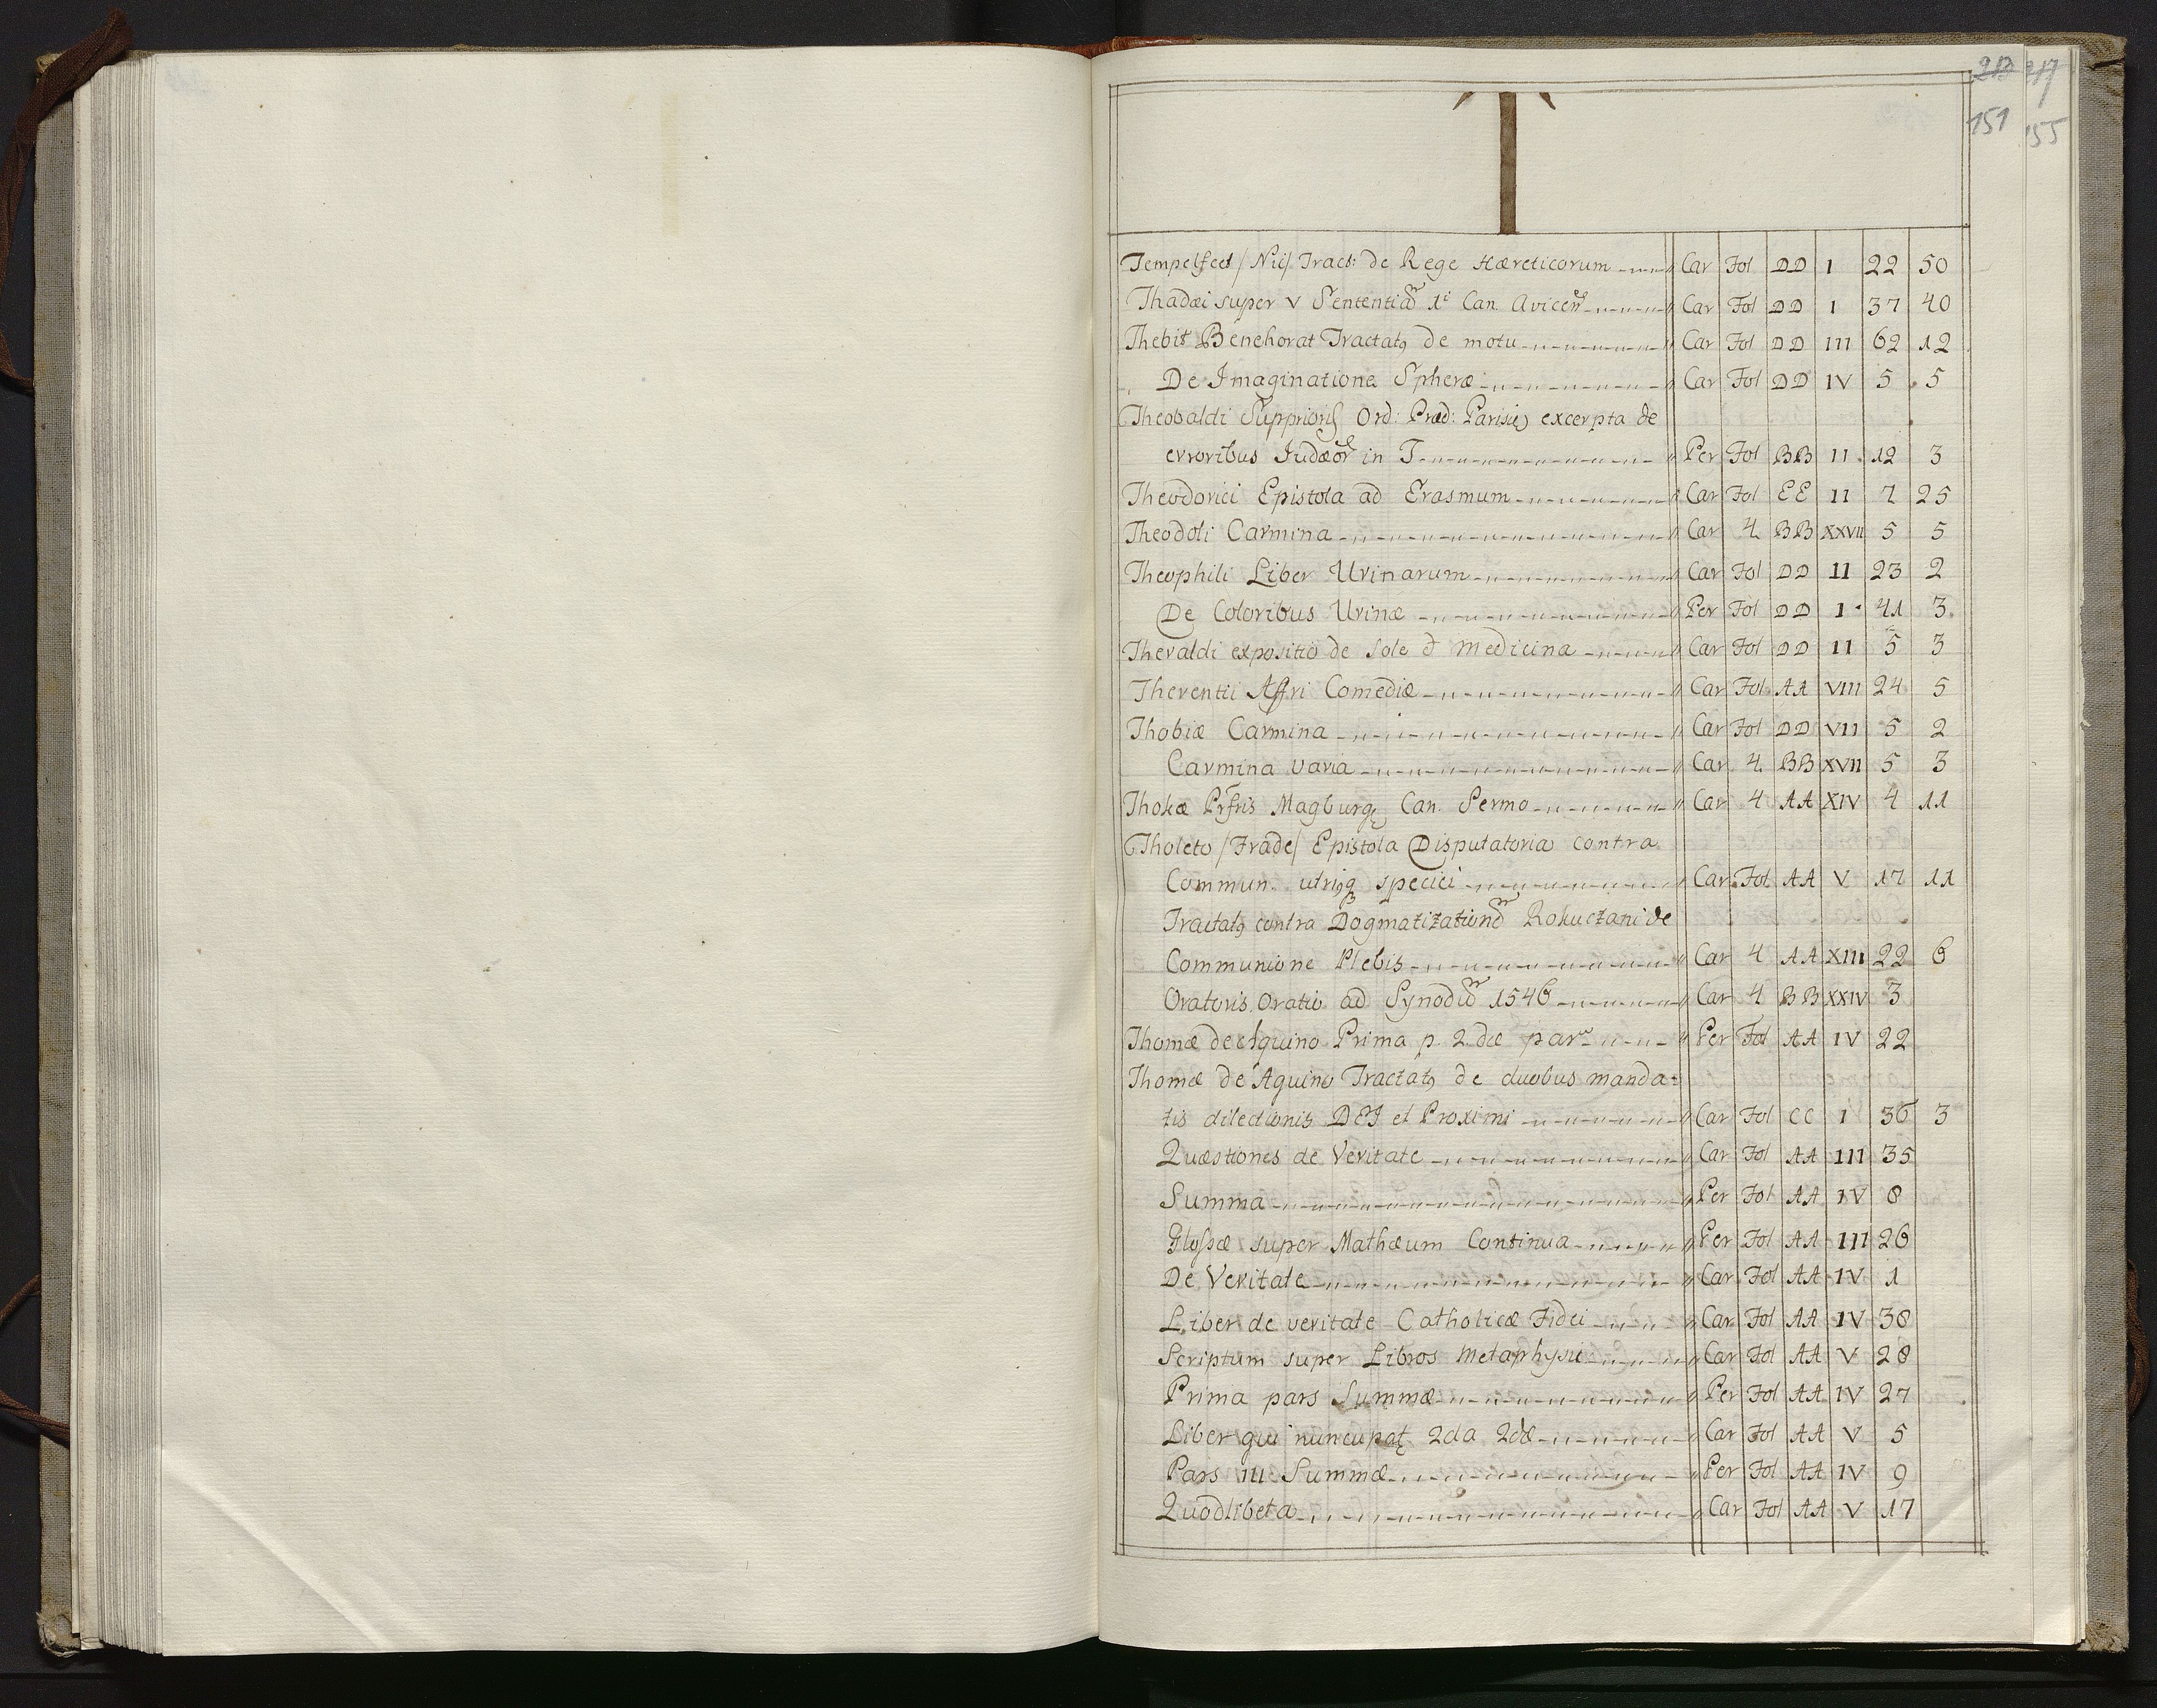 217
151 155
T
Tempelfeet / Nic / Tract: de Rege Hæreticorum Car Fol DD I 22 50
Thadæi super V Sententia 1i Can. Avicen Car Fol DD I 37 40
Thebit Benehorat Tractatꝯ de motu Car Fol DD III 62 12
De Imaginatione Spheræ Car Fol DD IV 5 5
Theobaldi Supprioris Ord: Præd: Parisiꝯ excerpta de
erroribus Judæor in T Per Fol BB II 12 3
Theodorici Epistola ad Erasmum Car Fol EE II 7 25
Theodoli Carmina Car 4 BB XXVII 5 5
Theophili Liber Urinarum Car Fol DD II 23 2
De Coloribus Urinæ Per Fol DD I 41 3
Theraldi expositio de sole medicina Car Fol DD II 5 3
Therentii Affri Comediæ Car Fol AA VIII 24 5
Thobiæ Carmina Car Fol DD VII 5 2
Carmina varia Car 4 BB XVII 5 3
Thokæ Magburg Can. Sermo Car 4 AA XIV 4 11
Tholeto / Frade / Epistola Disputatoria contra
Commun. utriꝯq speciei Car Fol AA V 17 11
Tractatꝯ contra Dogmatization Rokuczani de
Communione Plebis Car 4 AA XIII 22 6
Oratoris Oratio ad Synodu 1546 Car 4 BB XXIV 3
Thomæ de Aquino Prima p 2dæ par Per Fol AA IV 22
Thomæ de Aquino Tractatꝯ de duobus manda:
tis dilectionis DEI et Proximi Car Fol CC I 36 3
Quæstiones de Veritate Car Fol AA III 35
Summa Per Fol AA IV 8
Glossæ super Mathæum Continua Per Fol AA III 26
De Veritate Car Fol AA IV 1
Liber de veritate Catholicæ Fidei Car Fol AA IV 38
Scriptum super Libros Metaphysic Car Fol AA V 28
Prima pars Summæ Per Fol AA IV 27
Liber qui nuncupat 2da 2dæ Car Fol AA V 5
Pars III Summæ Per Fol AA IV 9
Quodlibeta Car Fol AA V 17